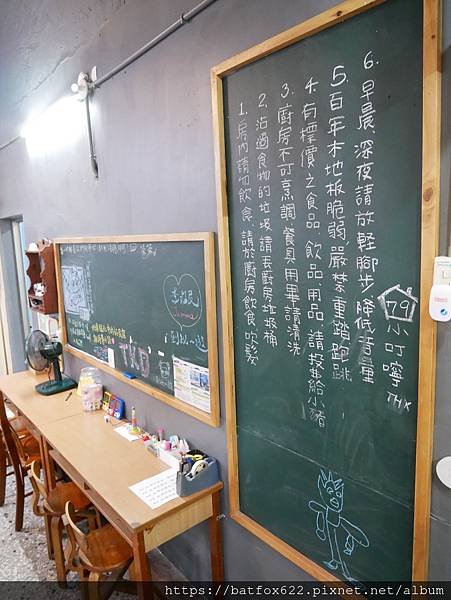 79
小叮嚀
THX
1. 房內請勿飲食、請於廚房飲食吹髮
2. 沾過食物的垃圾請丟廚房垃圾桶
3. 廚房不可烹調，餐具用畢請清洗
4. 有標價之食品.飲品.用品.請投幣給小豬
5. 百年木地板脆弱，嚴禁重踏跑跳
6. 早晨、深夜請放輕腳步，降低音量
https://batfox622.pixnet.net/album